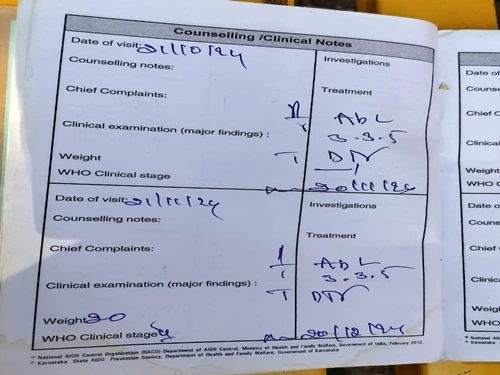 Counselling /Clinical Notes
Date of visit: 21/10/24
Investigations
Counselling notes:
Treatment
Chief Complaints:
ABL
Clinical examination (major findings) :
3.3.5
Weight
WHO Clinical stage
20/11/24
Date of visit: 21/11/24
Investigations
Counselling notes:
Treatment
Chief Complaints:
ABL
3.3.5
Clinical examination (major findings) :
Weight 20
WHO Clinical stage
20/12/24
National AIDS Control Organization (NACO) Department of AIDS Control, Ministry of Health and Family Welfare, Government of India, February 2012.
Karnataka State AIDS Prevention Society, Department of Health and Family Welfare, Government of Karnataka